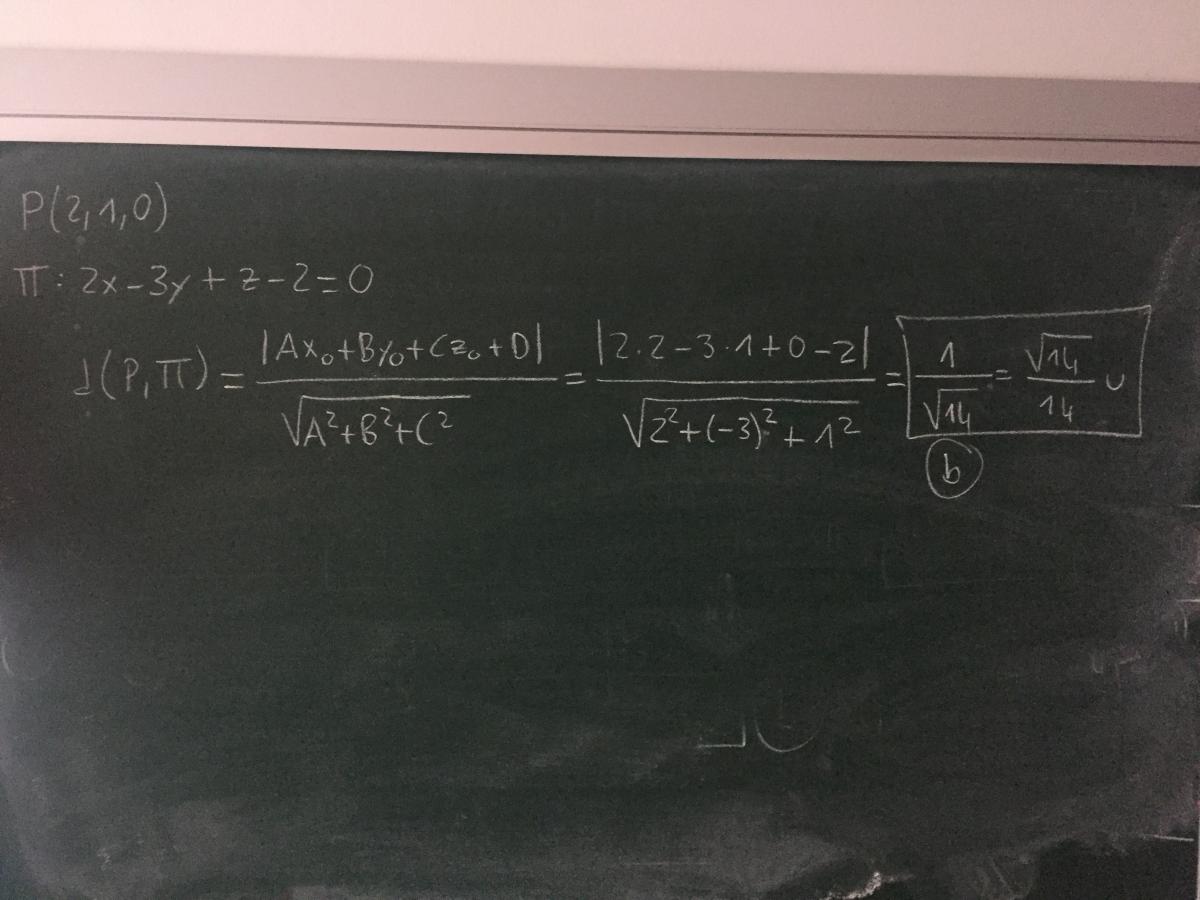 P(2,1,0)
π: 2x-3y+z-2=0
d(P,π) = |Ax₀+By₀+Cz₀+D| / √(A²+B²+C²) = |2·2-3·1+0-2| / √(2²+(-3)²+1²) = 1/√14 = √14/14 u
b